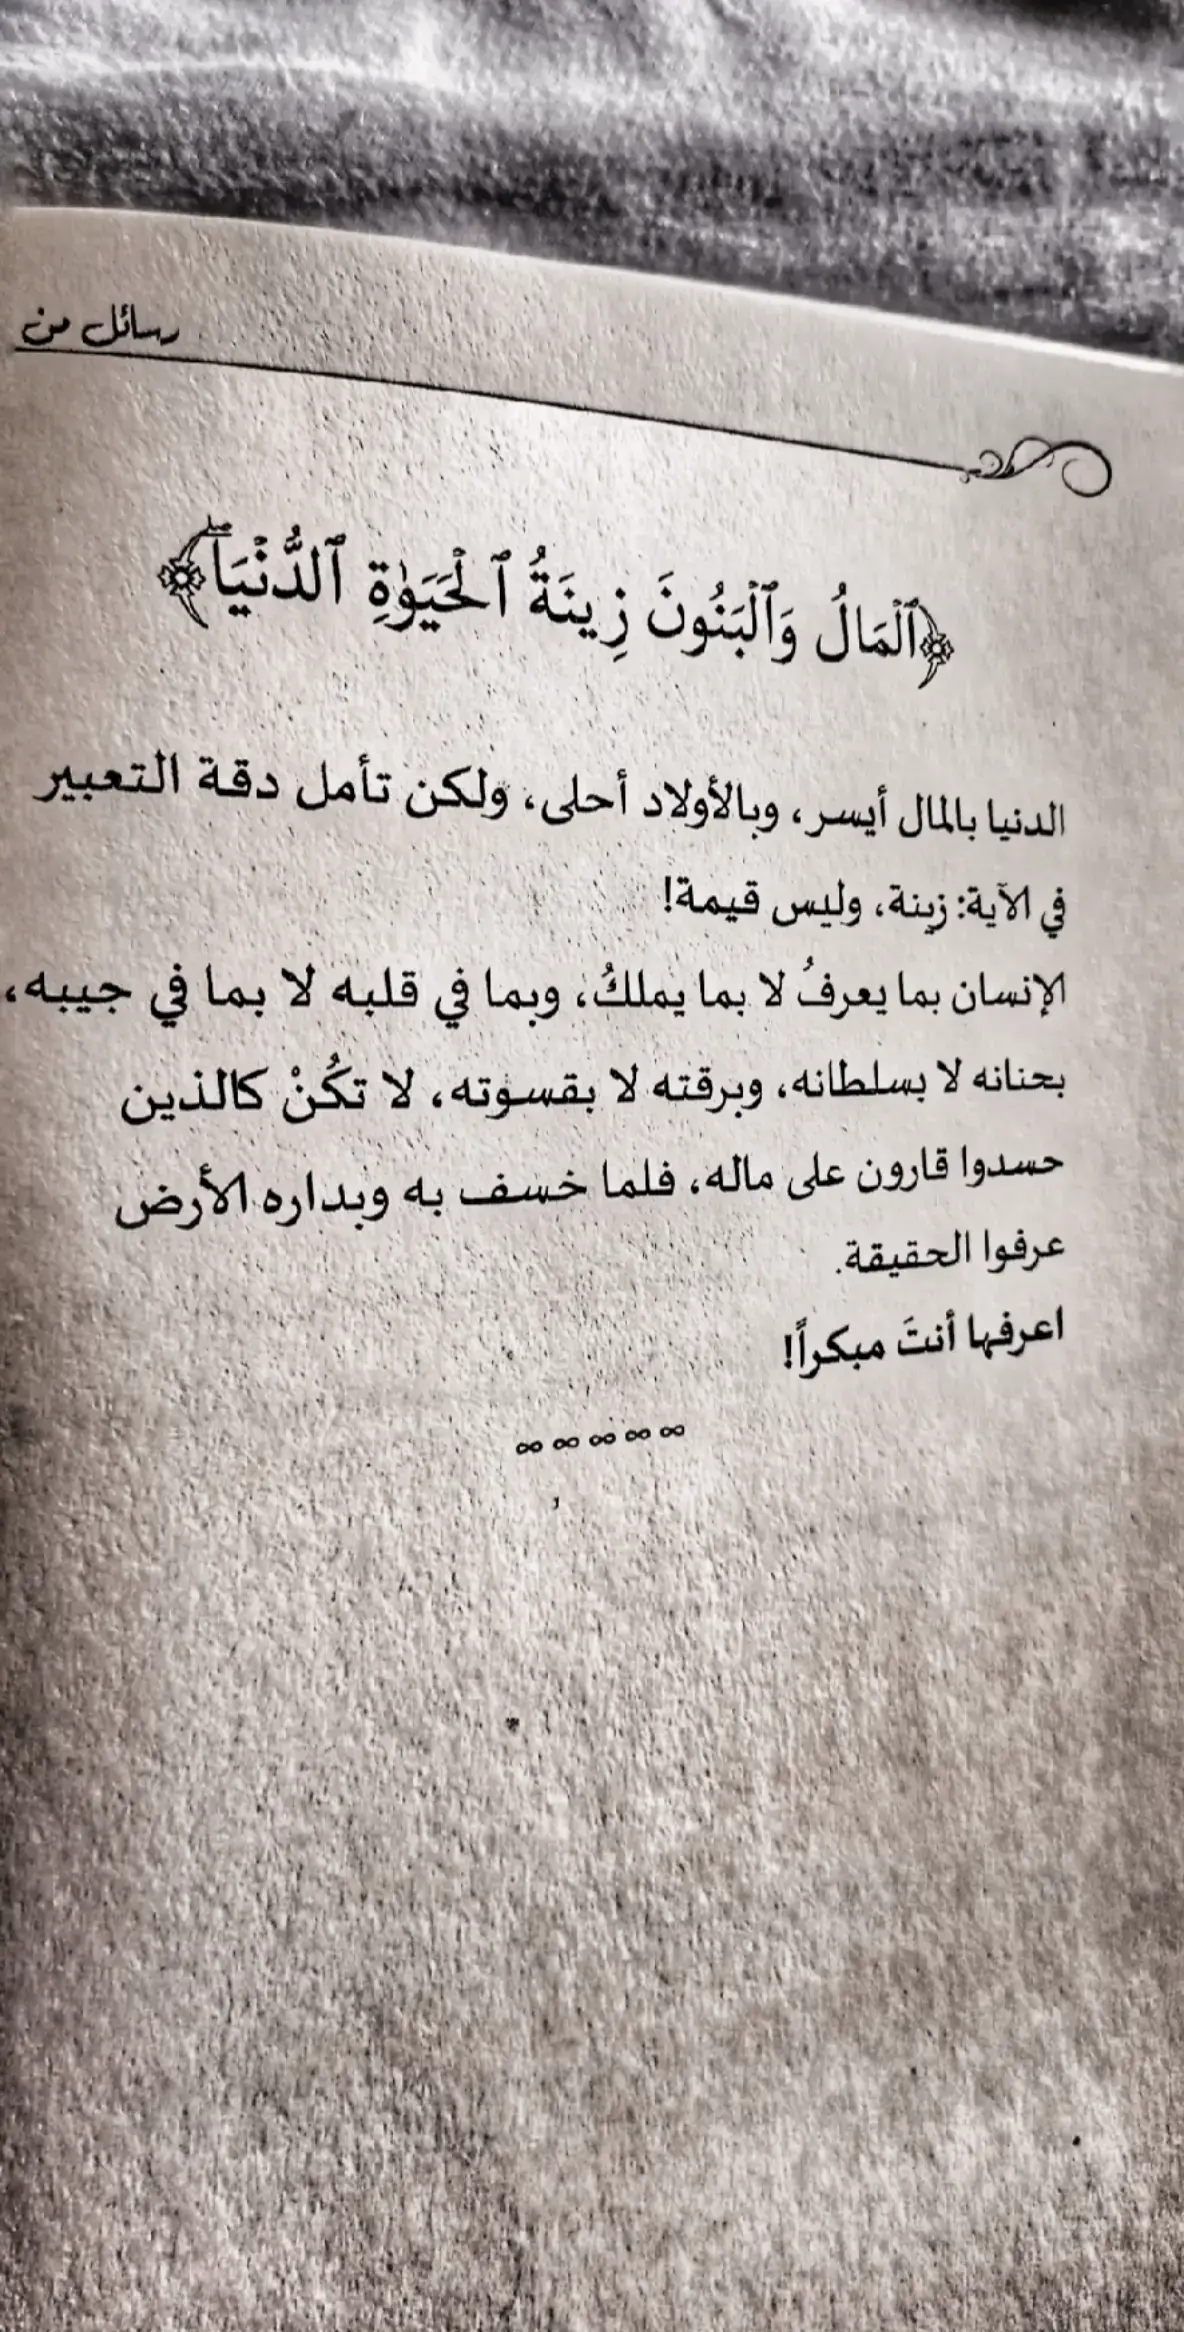 رسائل من
﴿ٱلْمَالُ وَٱلْبَنُونَ زِينَةُ ٱلْحَيَوٰةِ ٱلدُّنْيَاۖ﴾
الدنيا بالمال أيسر، وبالأولاد أحلى، ولكن تأمل دقة التعبير
في الآية: زينة، وليس قيمة!
الإنسان بما يعرفُ لا بما يملكُ، وبما في قلبه لا بما في جيبه،
بحنانه لا بسلطانه، وبرقته لا بقسوته، لا تكُنْ كالذين
حسدوا قارون على ماله، فلما خسف به وبداره الأرض
عرفوا الحقيقة.
اعرفها أنتَ مبكراً!